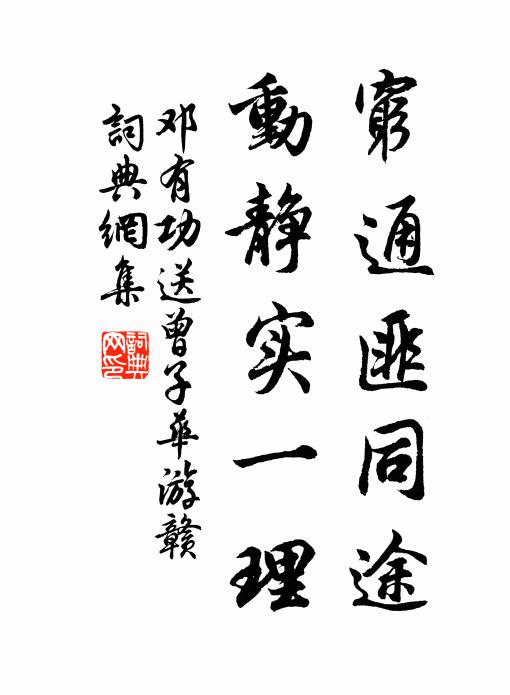 窮通匪同途
動静实一理
邓有功送曾子華游贛
詞典網集
詞典网印